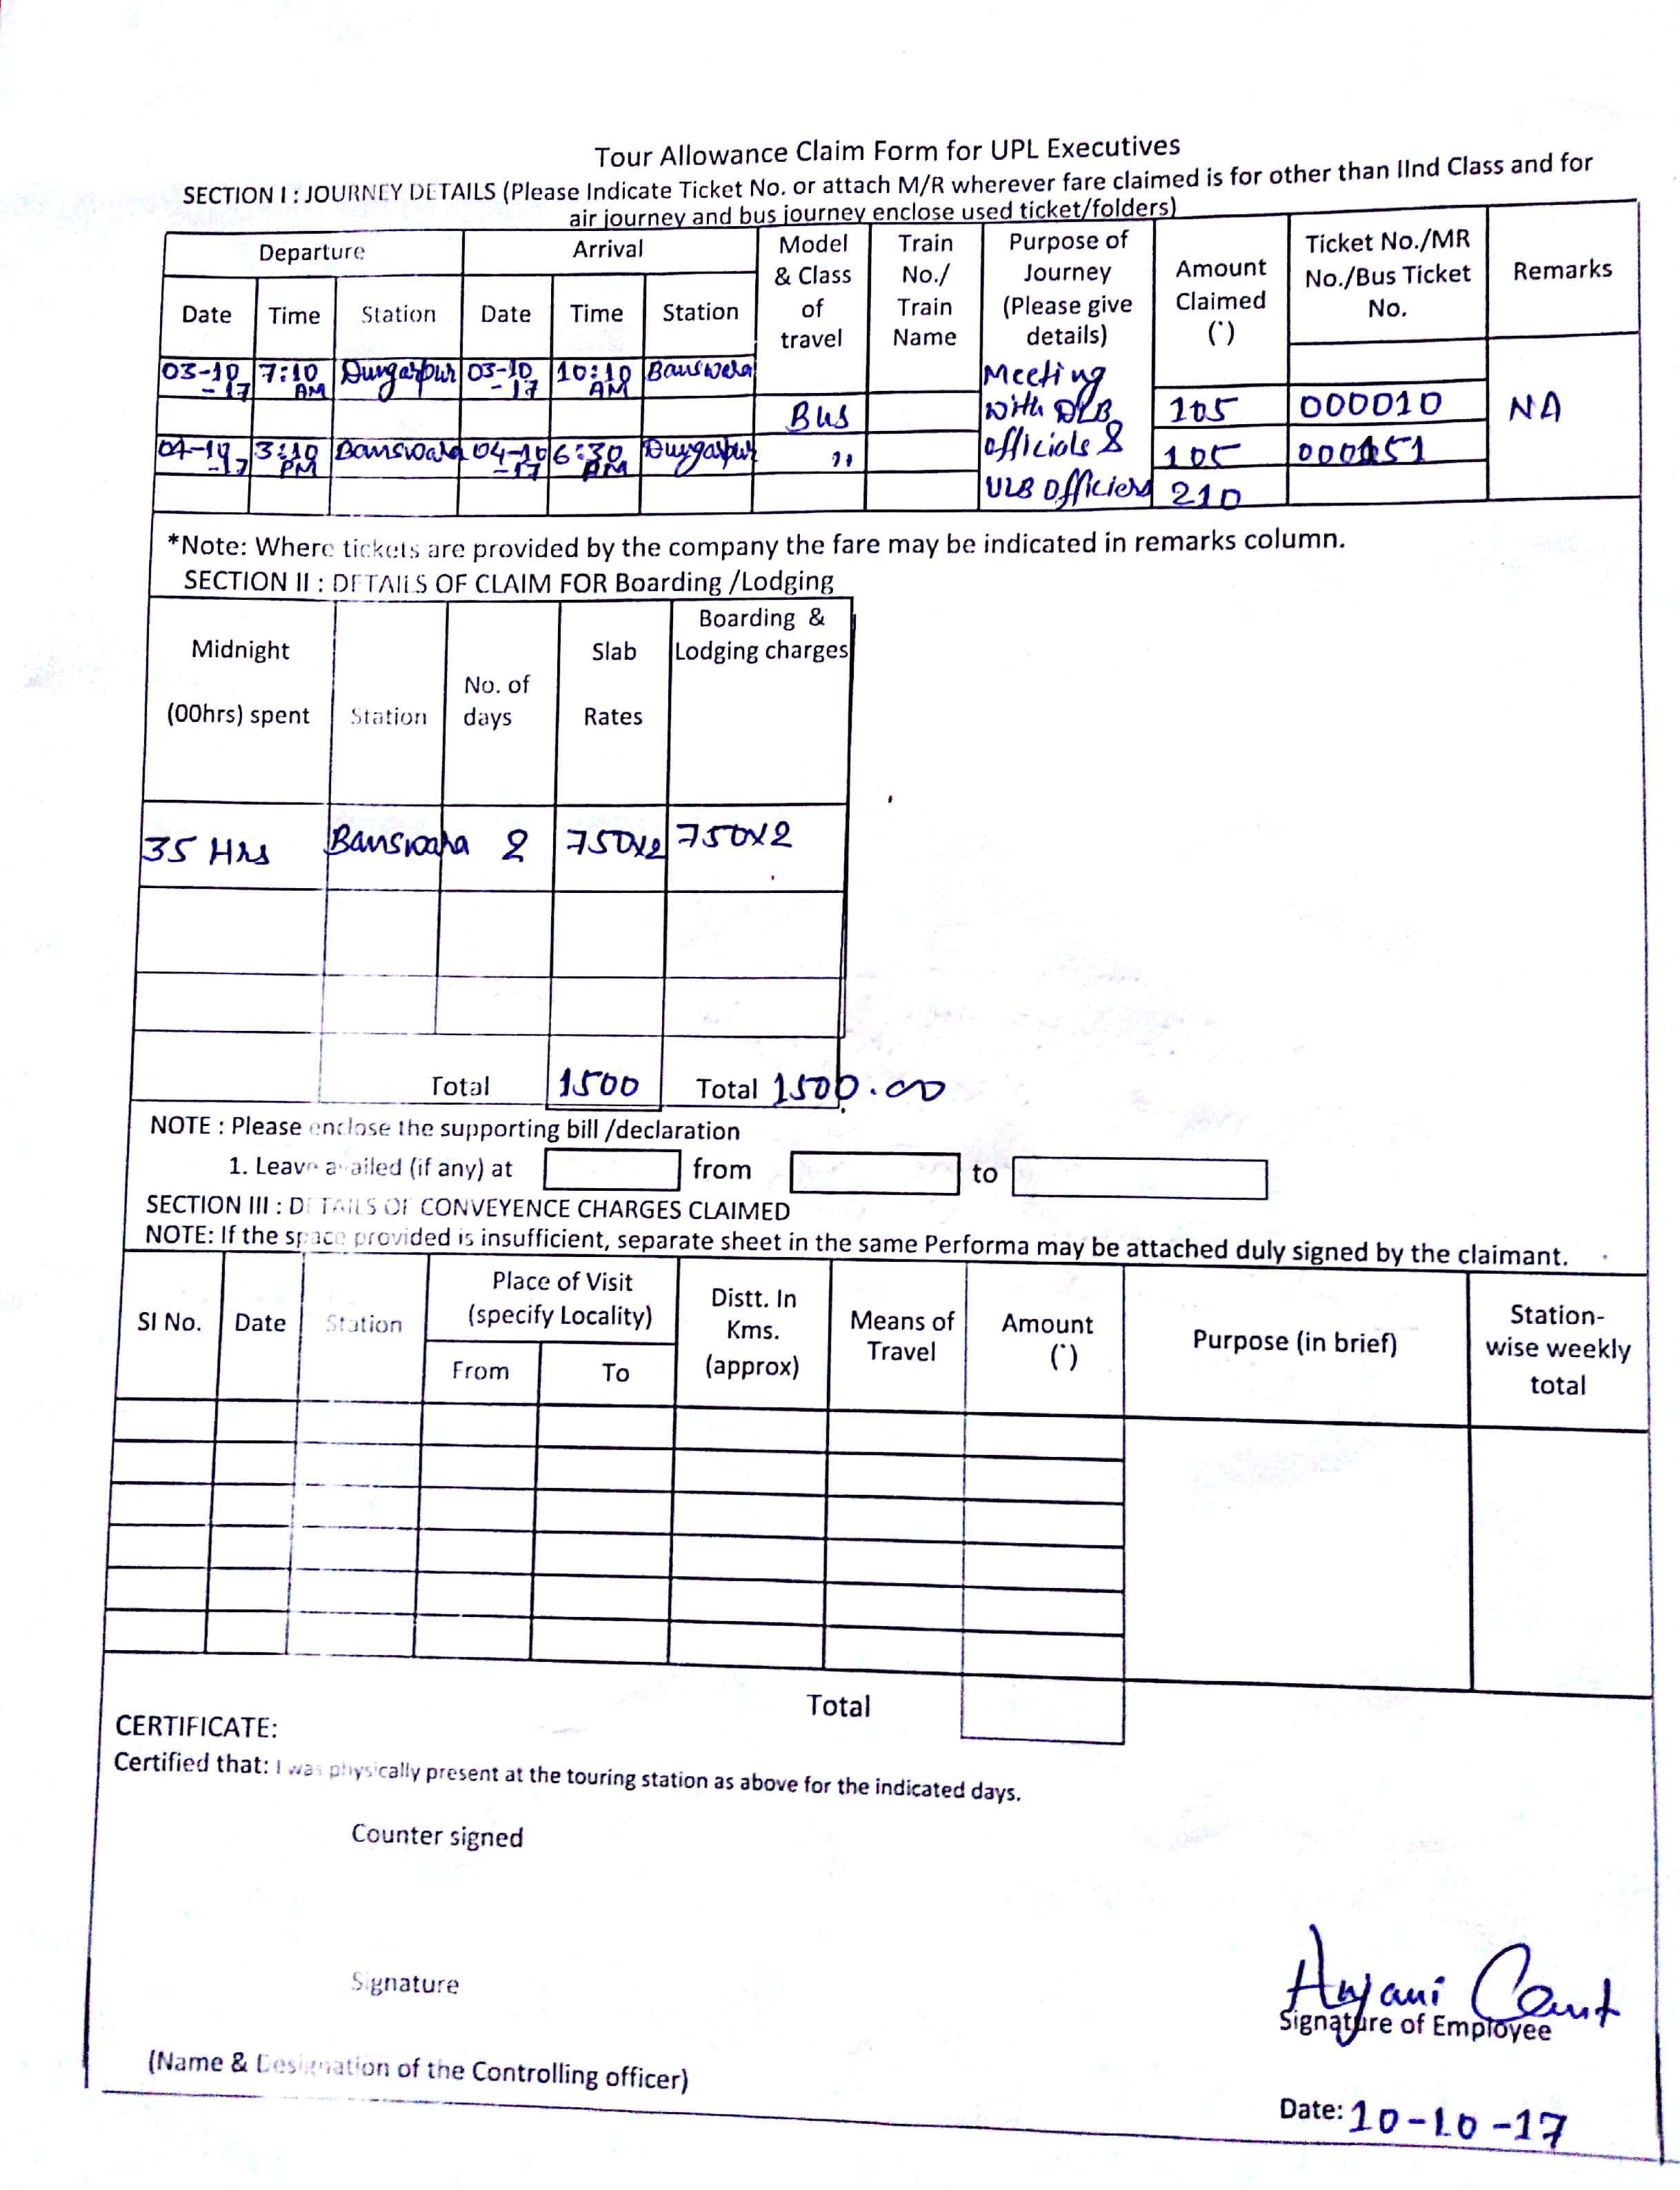 Tour Allowance Claim Form for UPL Executives
SECTION I : JOURNEY DETAILS (Please Indicate Ticket No. or attach M/R wherever fare claimed is for other than IInd Class and for
air journey and bus journey enclose used ticket/folders)
Departure Arrival Model & Class of travel Train No./ Train Name Purpose of Journey (Please give details) Amount Claimed (`) Ticket No./MR No./Bus Ticket No. Remarks
Date Time Station Date Time Station
03-10-17 7:10 AM Dungarpur 03-10-17 10:10 AM Banswara Meeting
Bus with DLB 105 000010 NA
3:10 PM Banswara 04-10-17 6:30 Dungarpur " officials & 105
ULB officiers 210
*Note: Where tickets are provided by the company the fare may be indicated in remarks column.
SECTION II : DETAILS OF CLAIM FOR Boarding /Lodging
Midnight (00hrs) spent Station No. of days Slab Rates Boarding & Lodging charges
35 Hrs Banswara 2 750x2 750x2
Total 1500 Total 1500.00
NOTE : Please enclose the supporting bill /declaration
1. Leave availed (if any) at from to
SECTION III : DETAILS OF CONVEYENCE CHARGES CLAIMED
NOTE: If the space provided is insufficient, separate sheet in the same Performa may be attached duly signed by the claimant.
SI No. Date Station Place of Visit (specify Locality) Distt. In Kms. (approx) Means of Travel Amount (`) Purpose (in brief) Station-wise weekly total
From To
Total
CERTIFICATE:
Certified that: I was physically present at the touring station as above for the indicated days.
Counter signed
Signature
Signature of Employee
(Name & Designation of the Controlling officer)
Date: 10-10-17